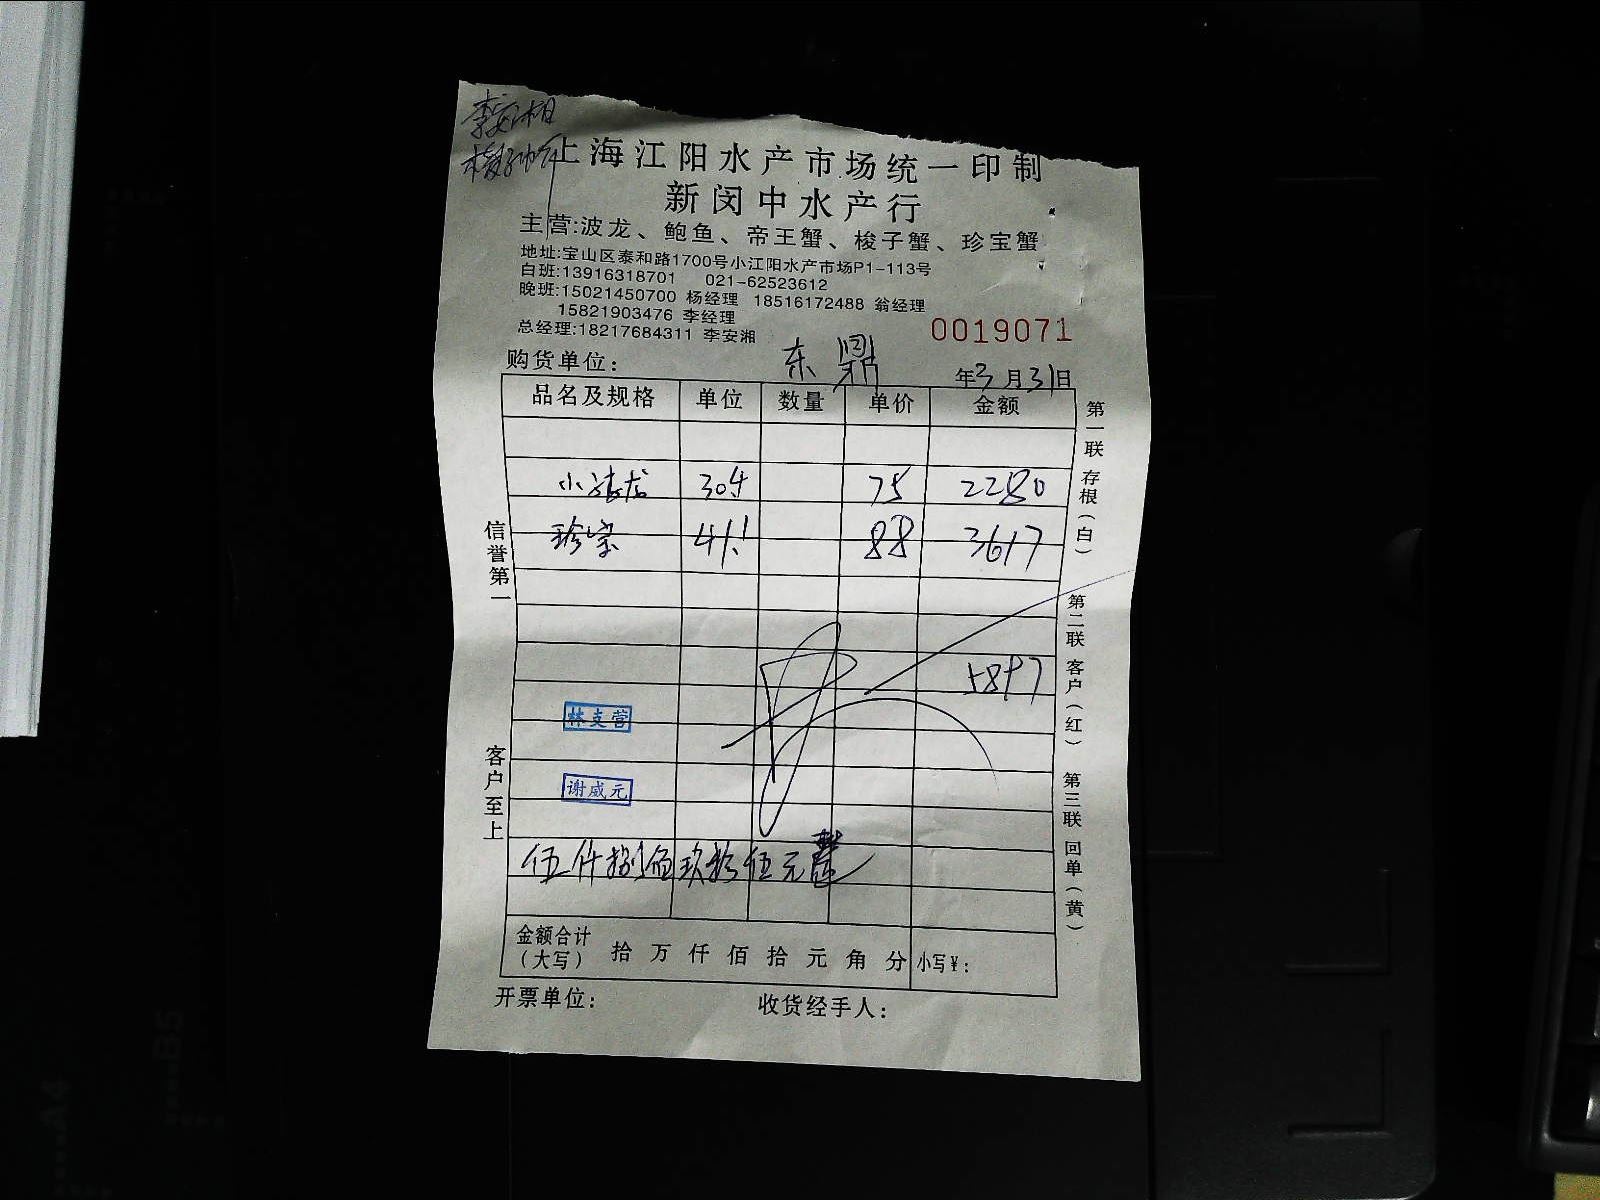 李安相
上海江阳水产市场统一印制
新闵中水产行
主营:波龙、鲍鱼、帝王蟹、梭子蟹、珍宝蟹
地址:宝山区泰和路1700号小江阳水产市场P1-113号
白班:13916318701 021-62523612
晚班:15021450700 杨经理 18516172488 翁经理
15821903476 李经理
总经理:18217684311 李安湘
0019071
购货单位: 东鼎
年3月31日
品名及规格 单位 数量 单价 金额
小波龙 304 75 2280
珍宝 41.1 88 3617
5897
林支营
谢威元
伍仟捌佰玖拾伍元整
金额合计(大写) 拾 万 仟 佰 拾 元 角 分 小写¥:
开票单位: 收货经手人:
信誉第一
客户至上
第一联 存根(白)
第二联 客户(红)
第三联 回单(黄)
A4
B5